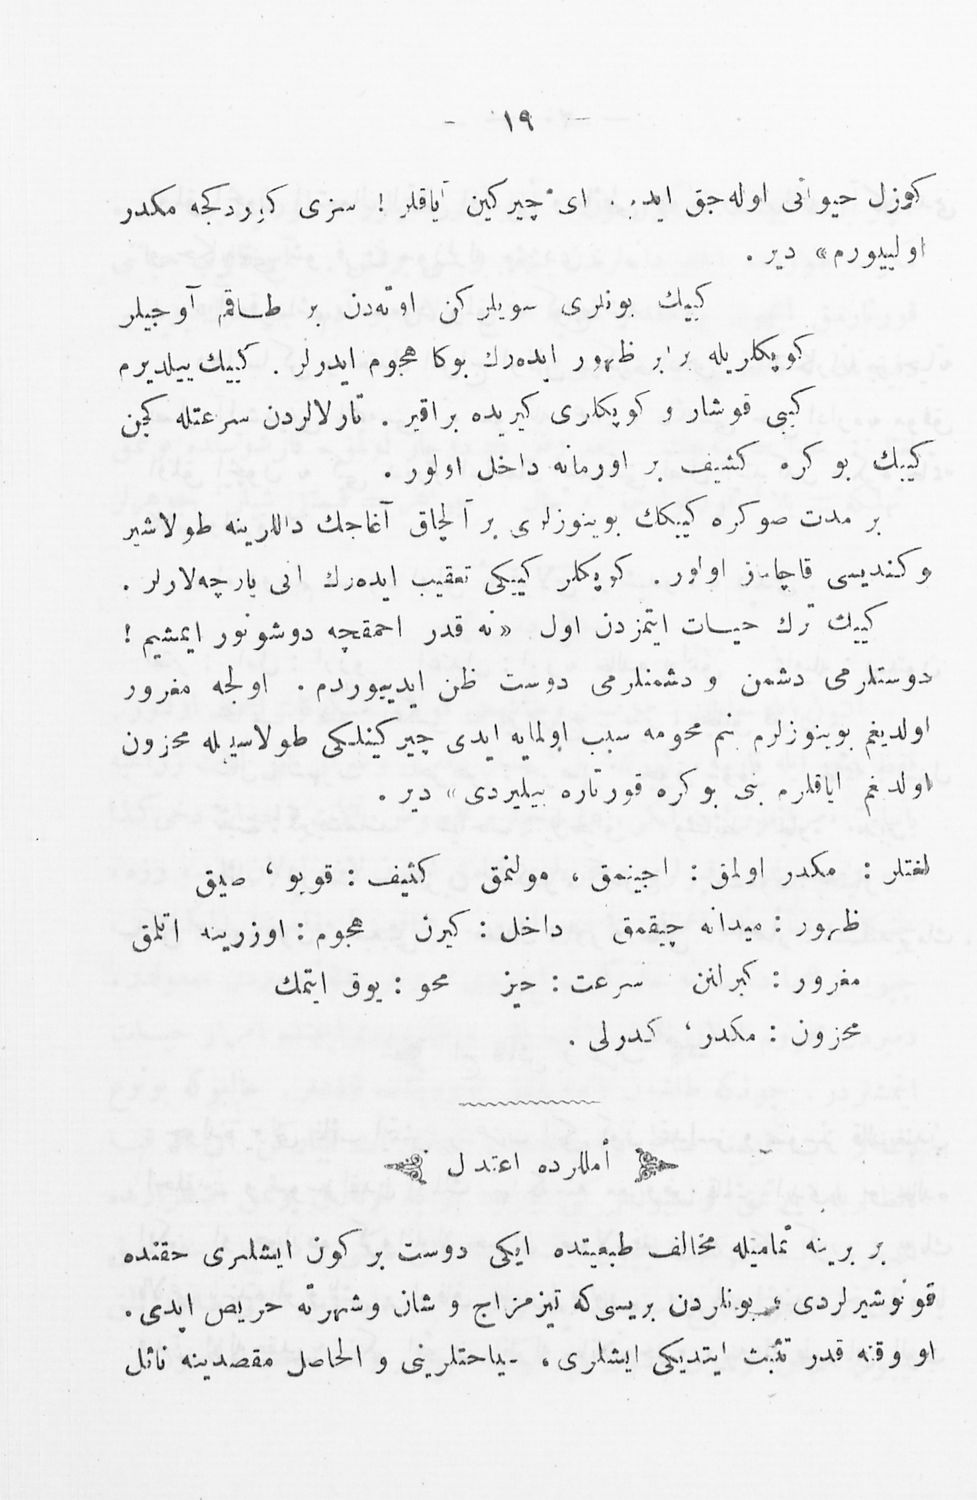 - ١٩ -
كوزل حيوانى اوله‌جق ايدم. اى چيركين آياقلر ! سزى كوردكجه مكدر
اولييورم» دير .
كييك بونلرى سويلركن اوته‌دن بر طاقم آوجيلر
كوپكلريله برابر ظهور ايده‌رك بوكا هجوم ايدرلر . كييك ييلديرم
كبى قوشار و كوپكلرى كيريده براقير . تارلالردن سرعتله كچن
كييك بو كره كثيف بر اورمانه داخل اولور .
بر مدت صوكره كييكك بوينوزلرى بر آلچاق آغاجك داللرينه طولاشير
و كنديسى قاچاماز اولور . كوپكلر كييكى تعقيب ايده‌رك انى پارچه‌لارلر .
كييك ترك حيات ايتمزدن اول «نه قدر احمقچه دوشونور ايمشيم !
دوستلرمى دشمن و دشمنلرمى دوست ظن ايدييوردم . اولجه مغرور
اولديغم بوينوزلرم بنم محومه سبب اولمايه ايدى چيركينلكى طولاسيله محزون
اولديغم اياقلرم بنى بو كره قورتاره بيليردى» دير .
لغتلر : مكدر اولمق : اجينمق ، مولنمق كثيف : قويو ، صيق
ظهور : ميدانه چيقمق داخل : كيرن هجوم : اوزرينه اتلمق
مغرور : كبرلنن سرعت : حيز محو : يوق ايتمك
محزون : مكدر ، كدرلى .
أمللرده اعتدل
بر برينه تماميله مخالف طبيعتده ايكى دوست بر كون ايشلرى حقنده
قونوشيرلردى ؛ بونلردن بريسى كه تيزمزاج و شان و شهرته حريص ايدى .
او وقته قدر تثبث ايتديكى ايشلرى ، سياحتلرينى و الحاصل مقصدينه نائل